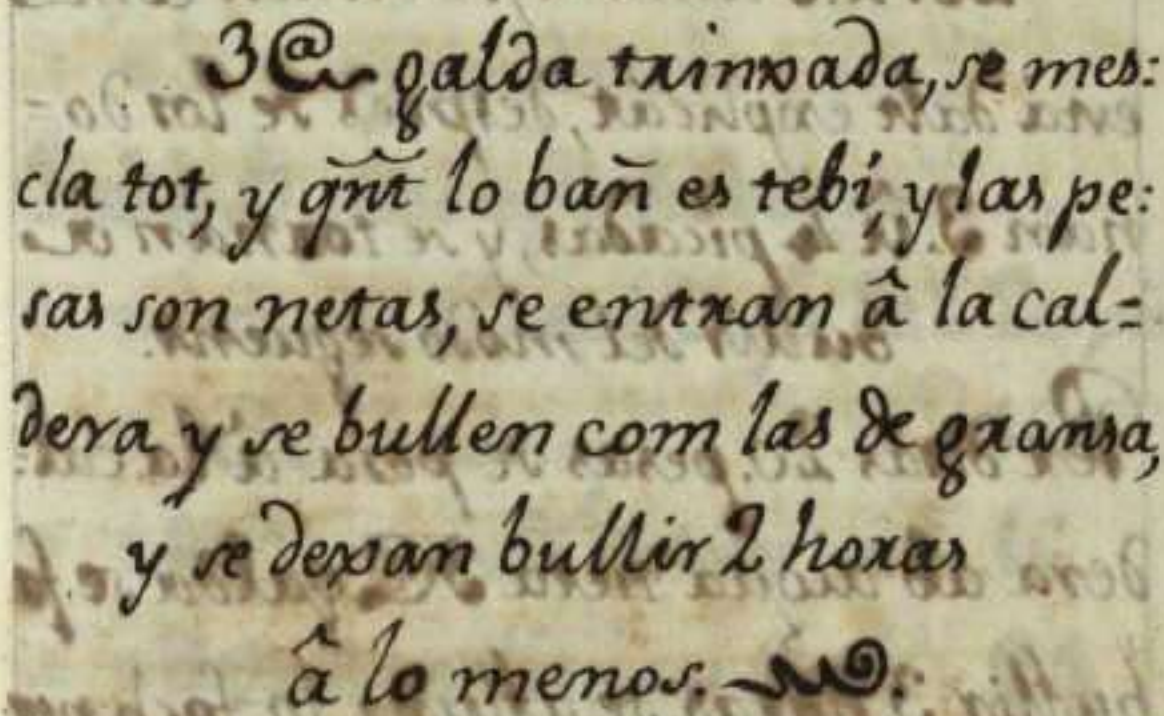 3@ galda trinxada, se mes:
cla tot, y qñt lo bañ es tebi, y las pe:
sas son netas, se entran â la cal=
dera y se bullen com las de gransa,
y se dexan bullir 2 horas
â lo menos.